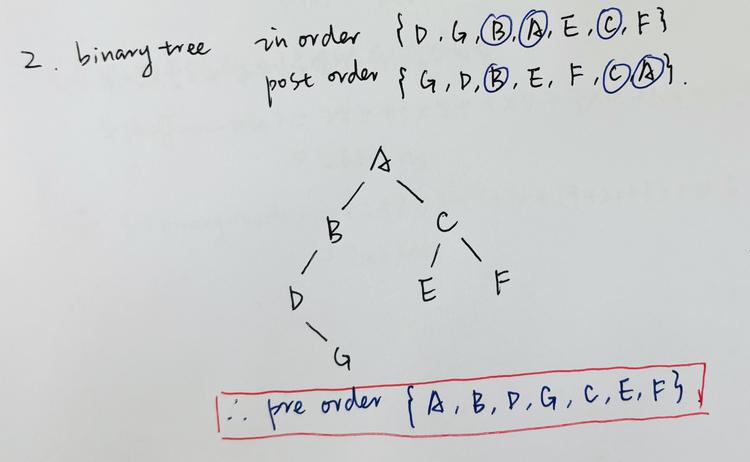 2. binary tree in order {D, G, B, A, E, C, F}
post order {G, D, B, E, F, C, A}.
A
B C
D E F
G
∴ pre order {A, B, D, G, C, E, F}